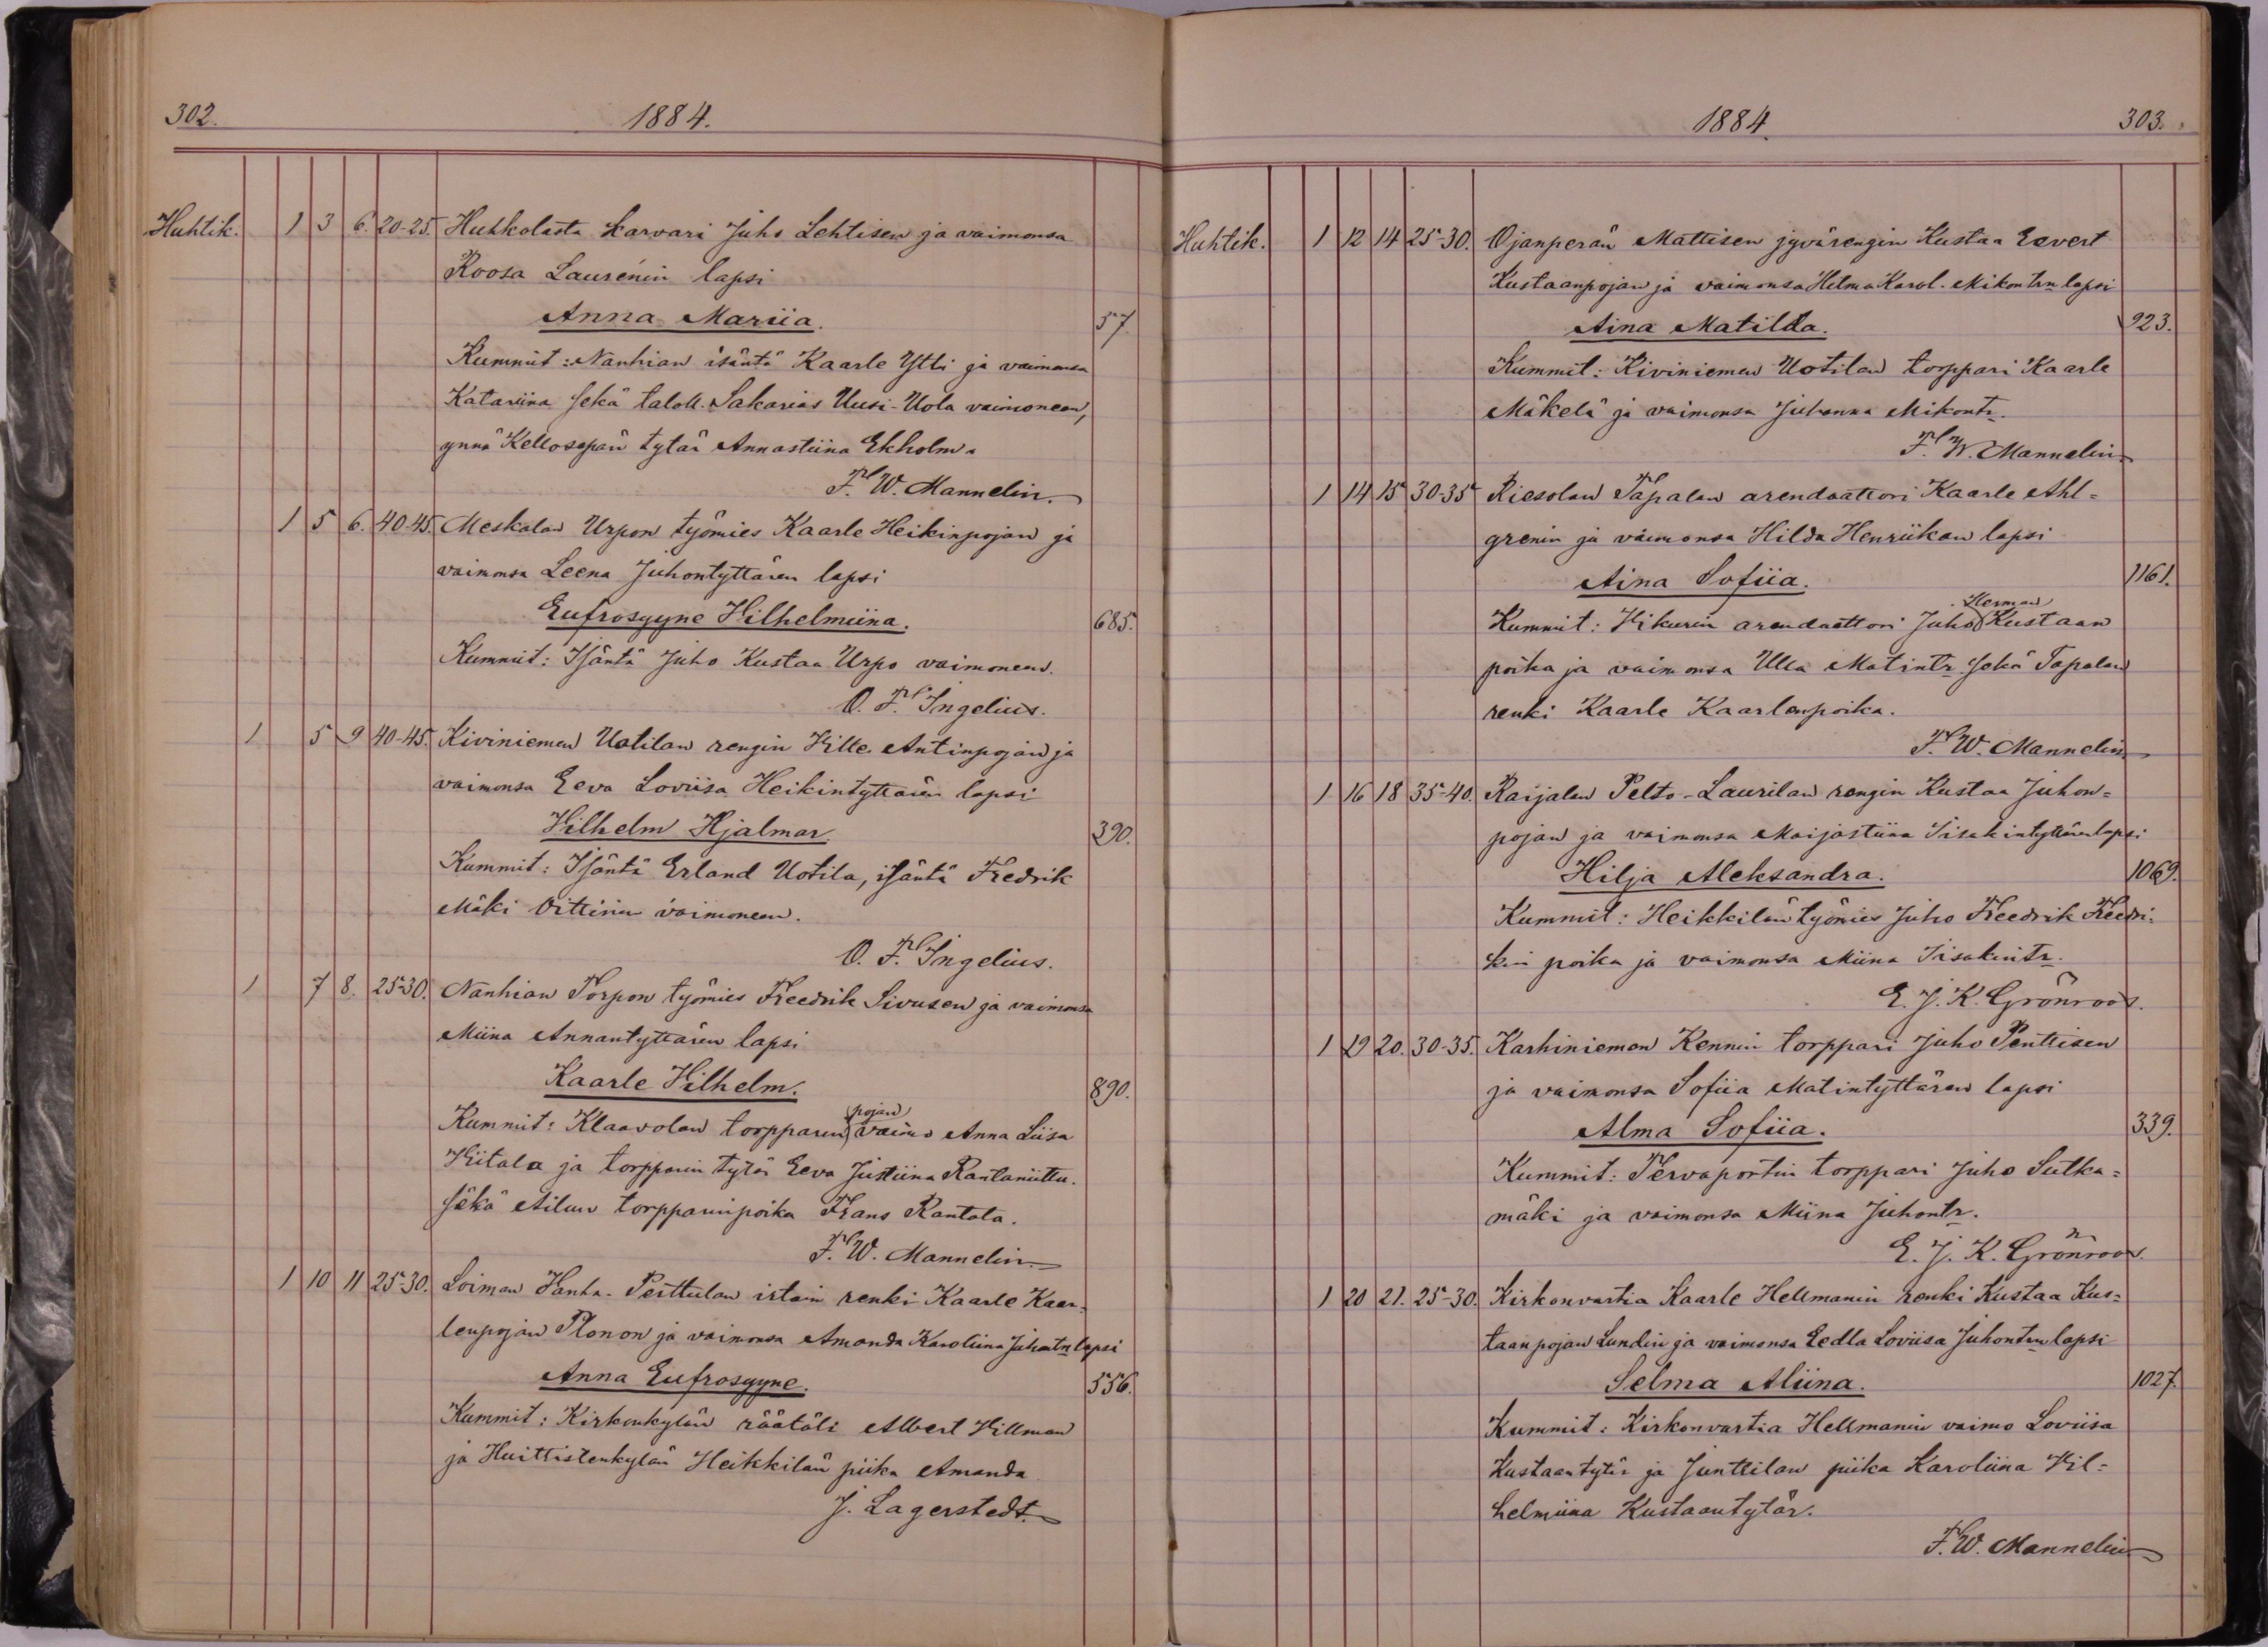 302. 1884.
Huhtik. 1 3 6. 20-25. Huhkolasta karvari Juho Lehtisen ja vaimonsa
Roosa Laurénin lapsi
Anna Mariia. 57
Kummit: Nanhian isäntä Kaarle Ytti ja vaimonsa
Katariina sekä taloll. Sakarias Uusi-Uola vaimoneen,
ynnä Kellosepän tytär Annastiina Ekholm.
F. W. Mannelin.
1 5 6. 40-45. Meskalan Urpon työmies Kaarle Heikinpojan ja
vaimonsa Leena Juhontyttären lapsi
Eufrosyyne Vilhelmiina. 685.
Kummit: Isäntä Juho Kustaa Urpo vaimoneen.
O. F. Ingelius.
1 5 9 40-45. Kiviniemen Uotilan rengin Ville Antinpojan ja
vaimonsa Eeva Loviisa Heikintyttären lapsi
Vilhelm Hjalmar 390.
Kummit: Isäntä Erland Uotila, isäntä Fredrik
Mäki Vittiin vaimoneen.
O. F. Ingelius.
1 7 8. 25-30. Nanhian Torpon työmies Freedrik Sivusen ja vaimonsa
Miina Annantyttären lapsi
Kaarle Vilhelm. 890.
Kummit: Klaavolan torpparin pojan vaimo Anna Liisa
Viitala ja torpparin tytär Eeva Justiina Rantaniittu.
sekä Ailun torpparinpoika Frans Rantala.
F. W. Mannelin.
1 10 11 25-30. Loiman Vanha-Perttulan irtain renki Kaarle Kaar-
lenpojan Plonon ja vaimonsa Amanda Karoliina Juhontn lapsi
Anna Eufrosyyne. 556.
Kummit: Kirkonkylän räätäli Albert Villman
ja Huittistenkylän Heikkilän piika Amanda
J. Lagerstedt.
1884. 303.
Huhtik. 1 12 14 25-30. Ojanperän Mattisen jyvärengin Kustaa Eevert
Kustaanpojan ja vaimonsa Helma Karol. Mikontrn lapsi
Aina Matilda. 923.
Kummit: Kiviniemen Uotilan torppari Kaarle
Mäkelä ja vaimonsa Juhanna Mikontr.
F. W. Mannelin
1 14 15 30-35 Riesolan Tapalan arendaattori Kaarle Ahl-
grenin ja vaimonsa Hilda Henriikan lapsi
Aina Sofiia. 1161.
Kummit: Vikurin arendaattori Juho Herman Kustaan
poika ja vaimonsa Ulla Matintr sekä Tapalan
renki Kaarle Kaarlenpoika.
F. W. Mannelin
1 16 18 35-40. Raijalan Pelto-Laurilan rengin Kustaa Juhon-
pojan ja vaimonsa Maijastiina Iisakintyttären lapsi
Hilja Aleksandra. 1069.
Kummit: Heikkilän työmies Juho Freedrik Freedri-
kin poika ja vaimonsa Miina Iisakintr.
E. J. K. Grönroos.
1 19 20. 30-35. Karhiniemen Kennin torppari Juho Penttisen
ja vaimonsa Sofiia Matintyttären lapsi
Alma Sofiia. 339.
Kummit: Tervaportin torppari Juho Sutka-
mäki ja vaimonsa Miina Juhontr.
E. J. K. Grönroos.
1 20 21. 25-30. Kirkonvartia Kaarle Hellmanin renki Kustaa Kus-
taanpojan Lundin ja vaimonsa Eedla Loviisa Juhontrn lapsi
Selma Aliina. 1027.
Kummit: Kirkonvartia Hellmanin vaimo Loviisa
Kustaantytär ja Junttilan piika Karoliina Vil-
helmiina Kustaantytär.
F. W. Mannelin